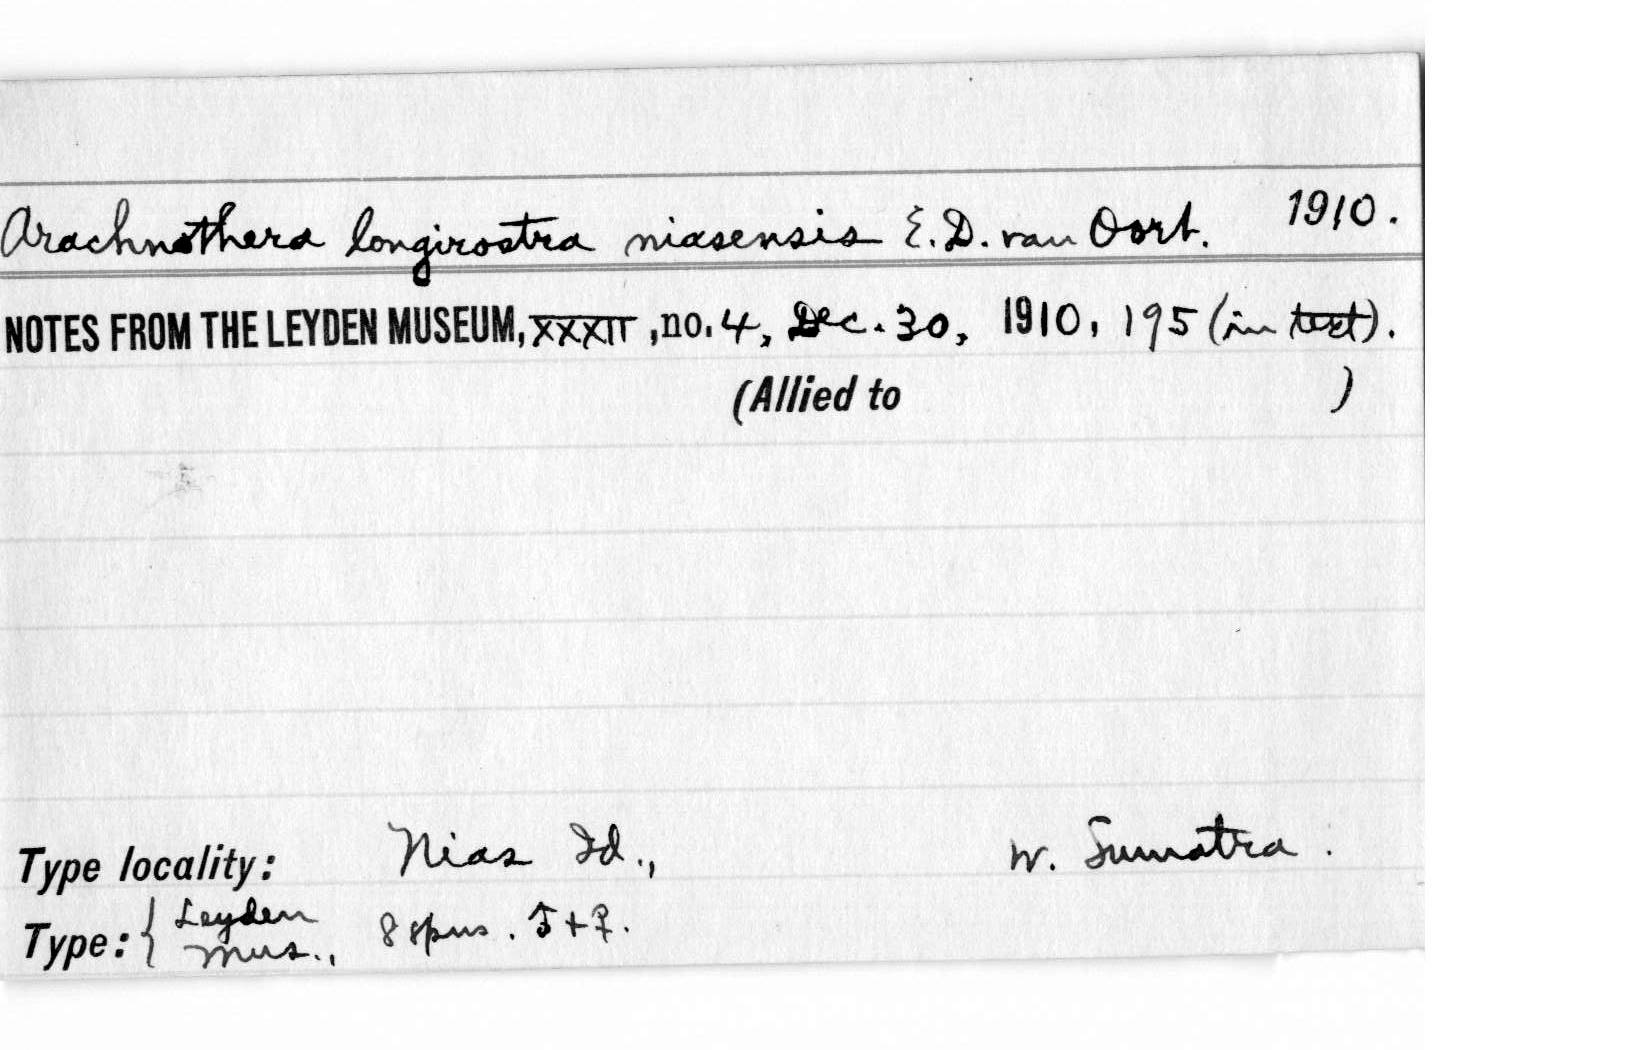 Arachnothera longirostra niasensis E. D. van Oort. 1910.
NOTES FROM THE LEYDEN MUSEUM, XXXII, no. 4, Dec. 30, 1910, 195 (in text).
(Allied to )
Type locality: Nias Id., W. Sumatra.
Type: { Leyden Mus., 8 spns. ♂ + ♀.